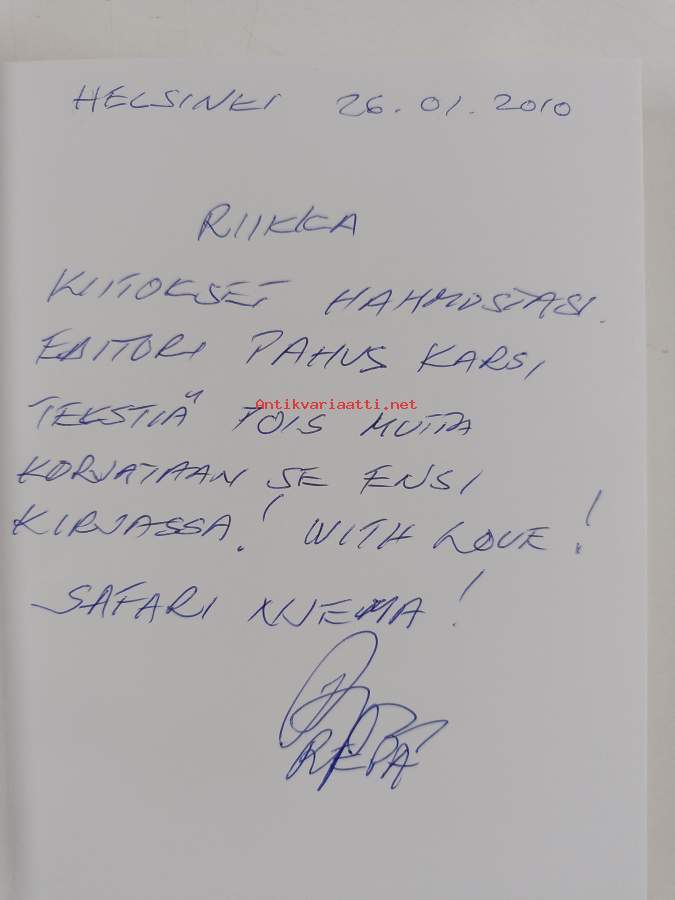 HELSINKI 26.01.2010
RIIKKA
KIITOKSET HAHMOSTASI.
EDITORI PAHUS KARSI
Antikvariaatti.net
TEKSTIÄ POIS MUTTA
KORJATAAN SE ENSI
KIRJASSA! WITH LOVE!
SAFARI NJEMA!
REPA